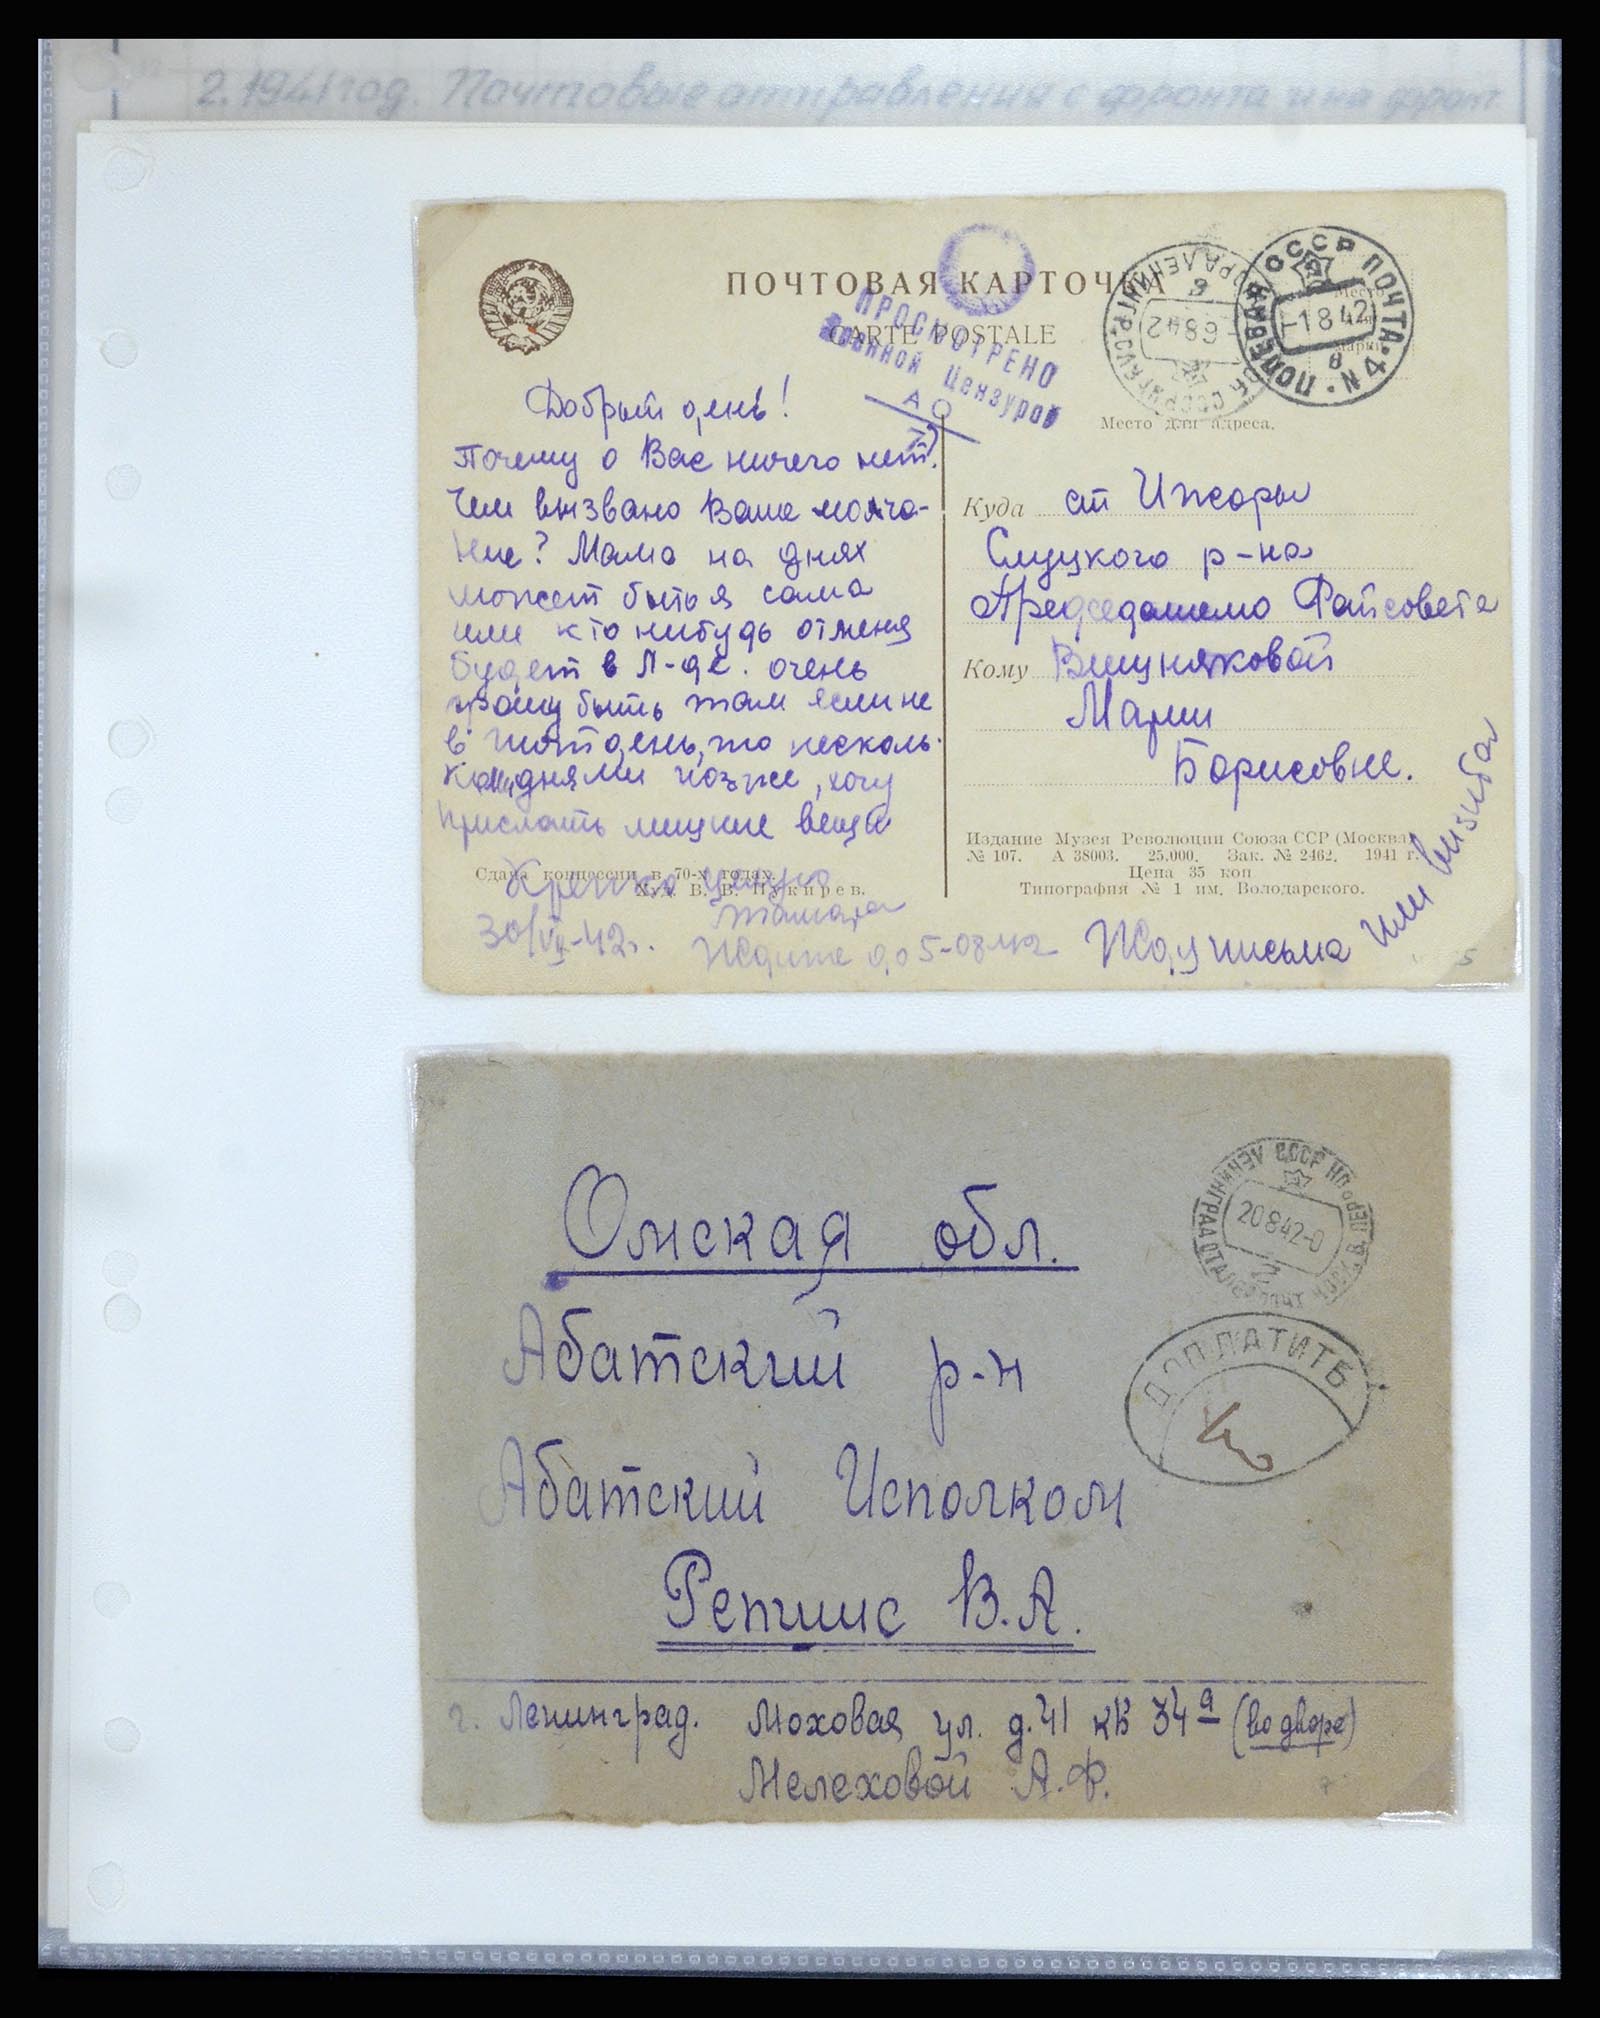 2. 1941 год. Почтовые отправления с фронта и на фронт
ПОЧТОВАЯ КАРТОЧКА
CARTE POSTALE
ПРОСМОТРЕНО
Военной Цензурой
СССР ПОЧТА • N 4 • ПОЛЕВАЯ
-1 8 42
в
6 8 42
в
Место
для
марки
Место для адреса.
Добрый день!
Почему о Вас ничего нет.
Чем вызвано Ваше молча-
ние? Мама на днях
может быть я сама
или кто нибудь от меня
будет в Л-де. очень
прошу быть там если не
в этот день, то несколь-
днями позже, хочу
прислать вещи
Крепко целую
Тамара
30/VII-42г.
Ждите до 5-08
Жду письма
или визита
Куда ст Ижоры
Слуцкого р-на
Председателю
Кому Вишняковой
Марии
Борисовне.
Сдача концессии в 70-х годах.
Худ. В. В. Пукирев.
Издание Музея Революции Союза ССР (Москва)
№ 107. А 38003. 25.000. Зак. № 2462. 1941 г.
Цена 35 коп
Типография № 1 им. Володарского.
СССР ЛЕНИНГРАД
20 8 42-0
ДОПЛАТИТЬ
Омская обл.
Абатский р-н
Абатский Исполком
Репшис В.А.
г. Ленинград. Моховая ул. д. 41 кв 34а (во дворе)
Мелеховой А.Ф.